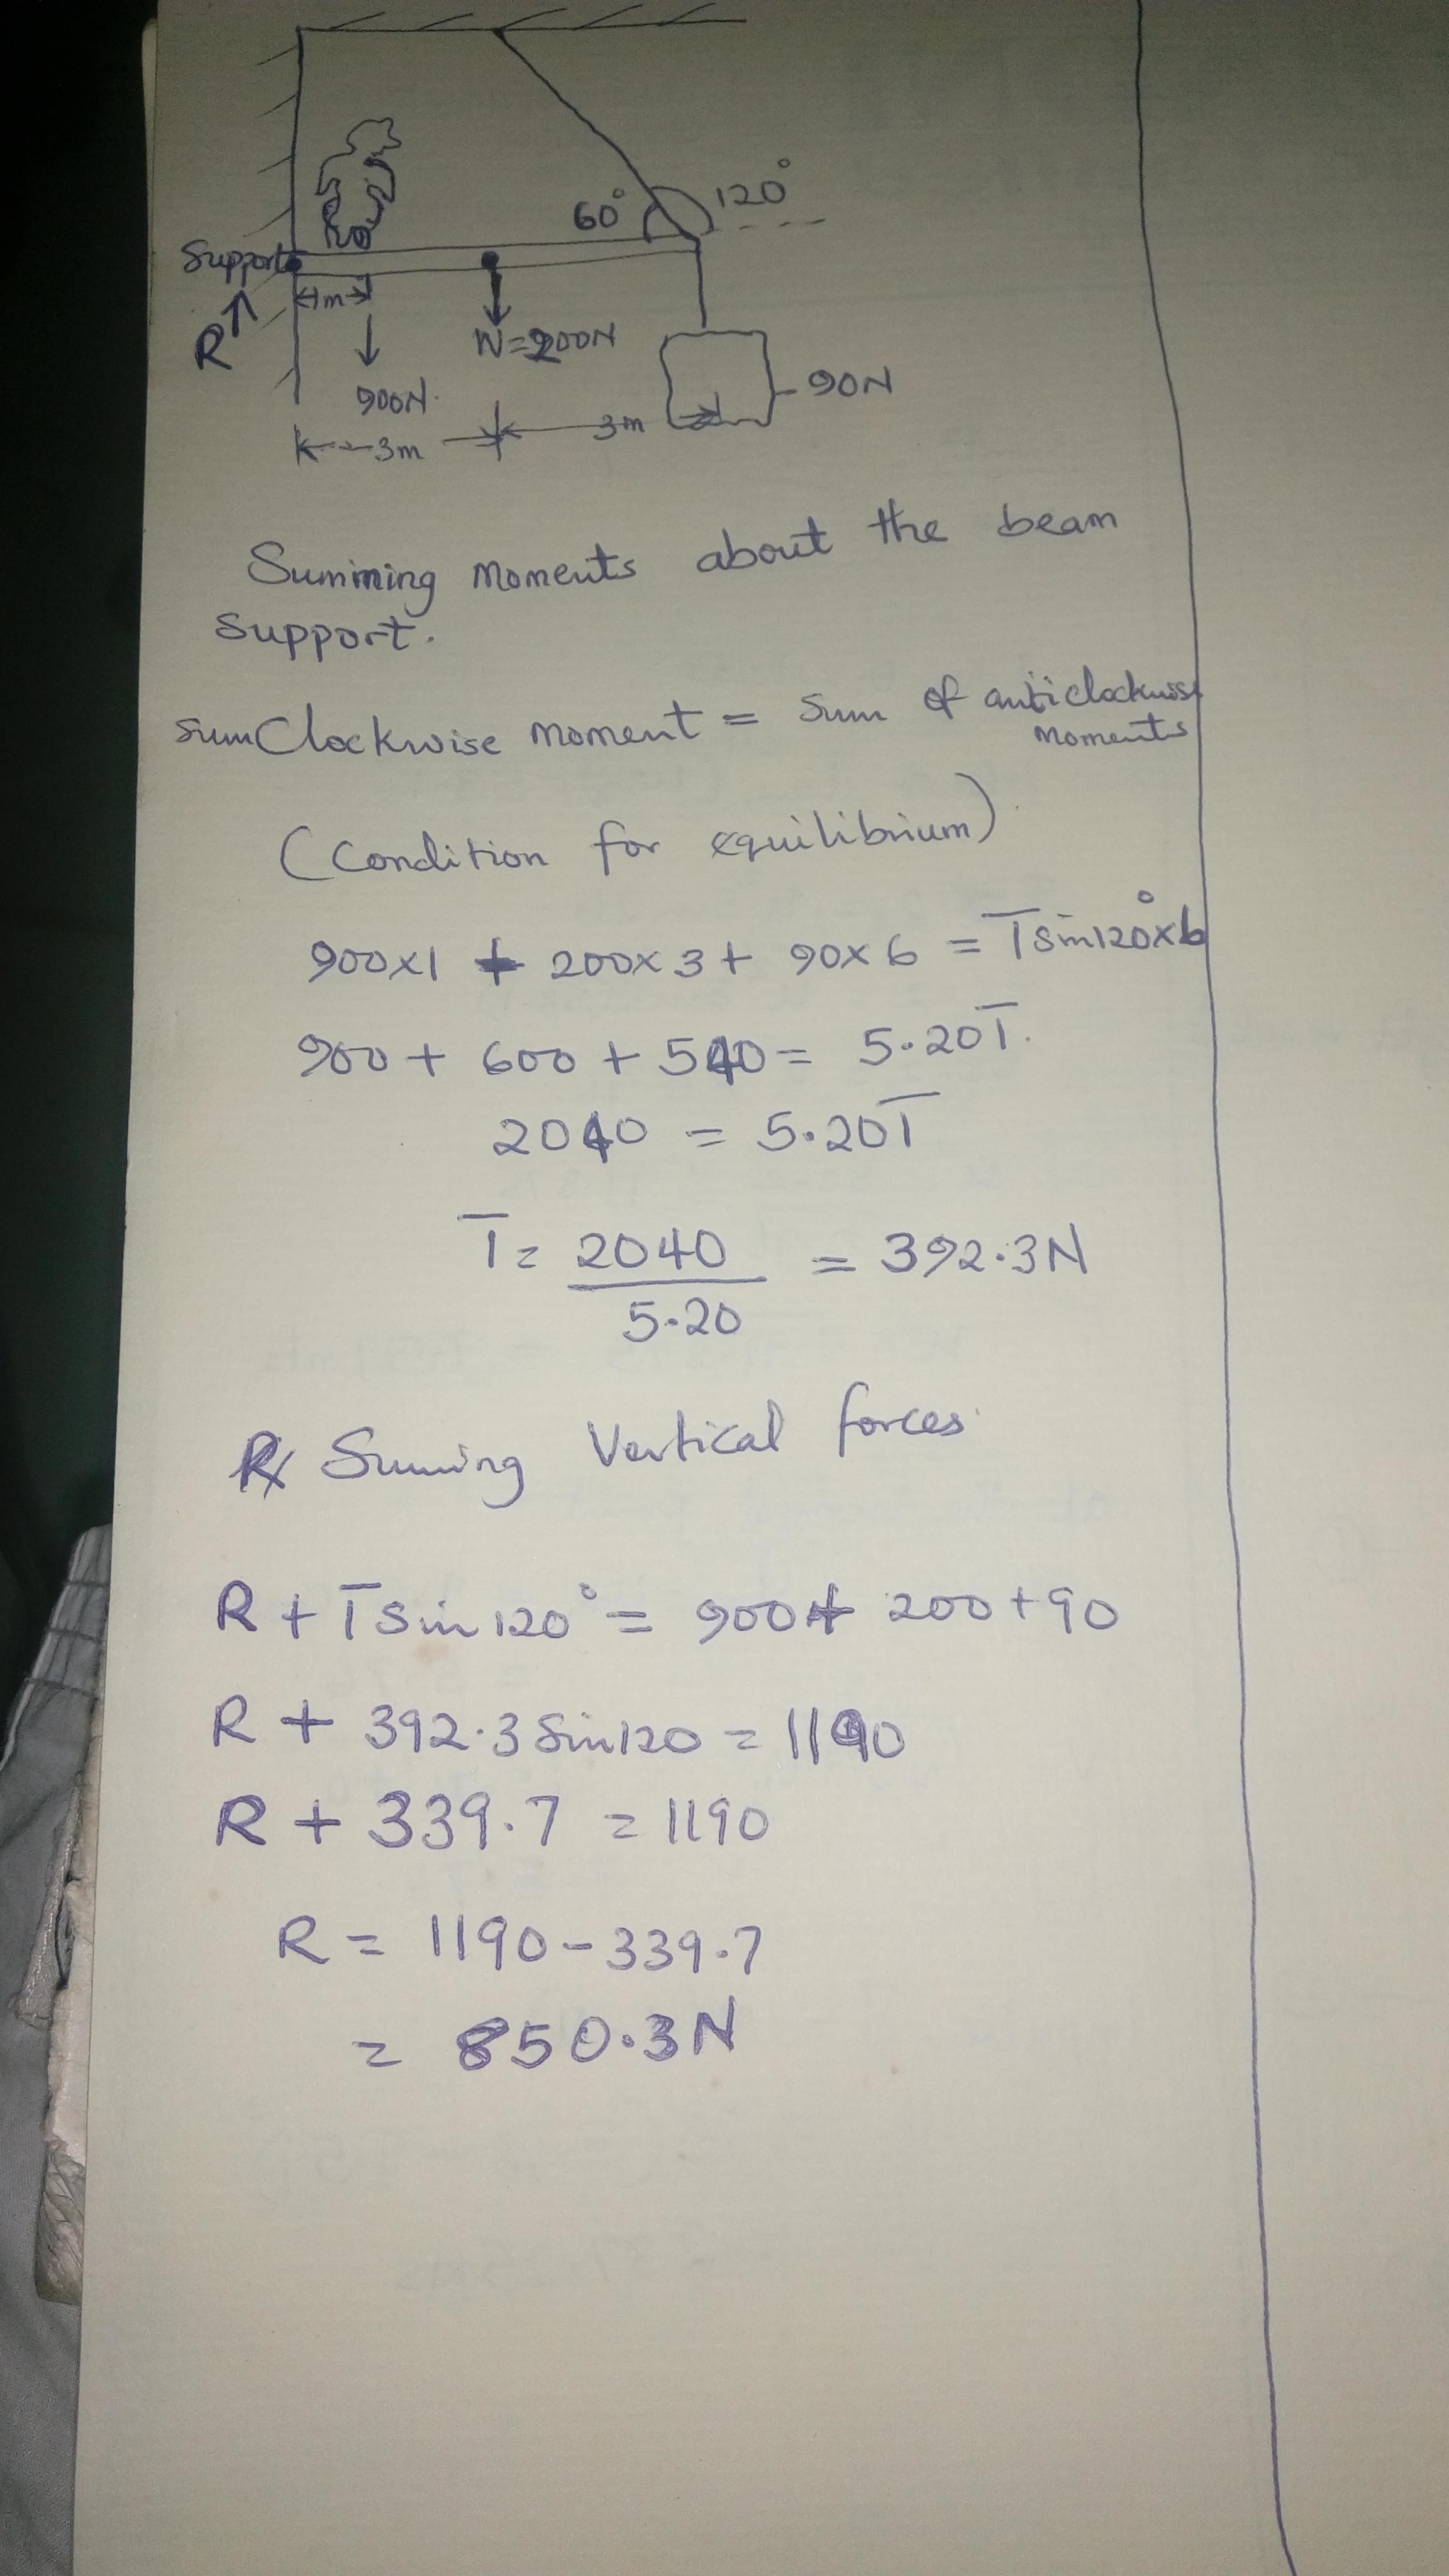 60°
120°
Support
R
1m
W=200N
900N.
90N
3m
3m
Summing moments about the beam
support.
sum Clockwise moment = sum of anticlockwise
moments
(Condition for equilibrium)
900x1 + 200x3 + 90x6 = Tsin120°x6
900 + 600 + 540 = 5.20T.
2040 = 5.20T
T = 2040 = 392.3N
5.20
Suming Vertical forces.
R + Tsin120° = 900 + 200 + 90
R + 392.3 Sin120 = 1190
R + 339.7 = 1190
R = 1190 - 339.7
= 850.3N